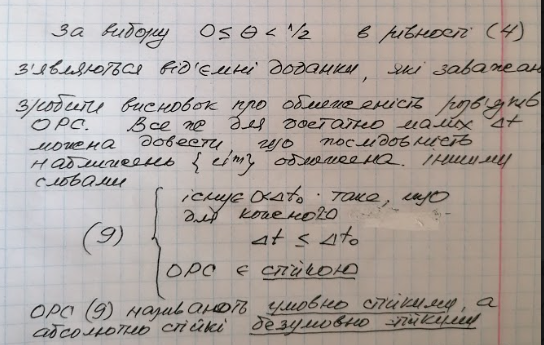 За вибору 0 ≤ Θ < 1/2 в рівності (4)
з'являються від'ємні доданки, які заважаю
зробити висновок про обмеженість розв'язків
ОРС. Все ж для достатно малих Δt
можна довести що послідовність
наближень { } обмежена. Іншими
словами
існує 0<Δt₀ таке, що
для кожного
(9) Δt ≤ Δt₀
ОРС є стійкою
ОРС (9) називають умовно стійкими, а
абсолютно стійкі безумовно стійкими